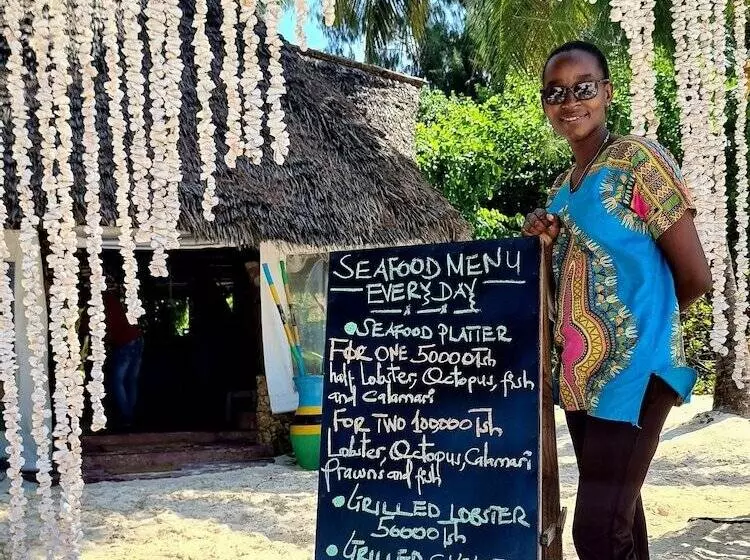 SEAFOOD MENU
EVERYDAY
SEAFOOD PLATTER
FOR ONE 50000Tsh
half Lobster, Octopus, fish
and Calamari
FOR TWO 100,000Tsh
Lobster, Octopus, Calamari
Prawns and fish
GRILLED LOBSTER
50000Tsh
GRILLED